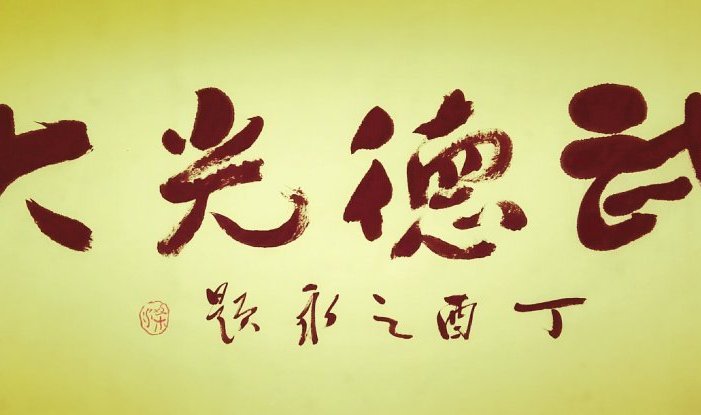 武德光大
丁酉之永题